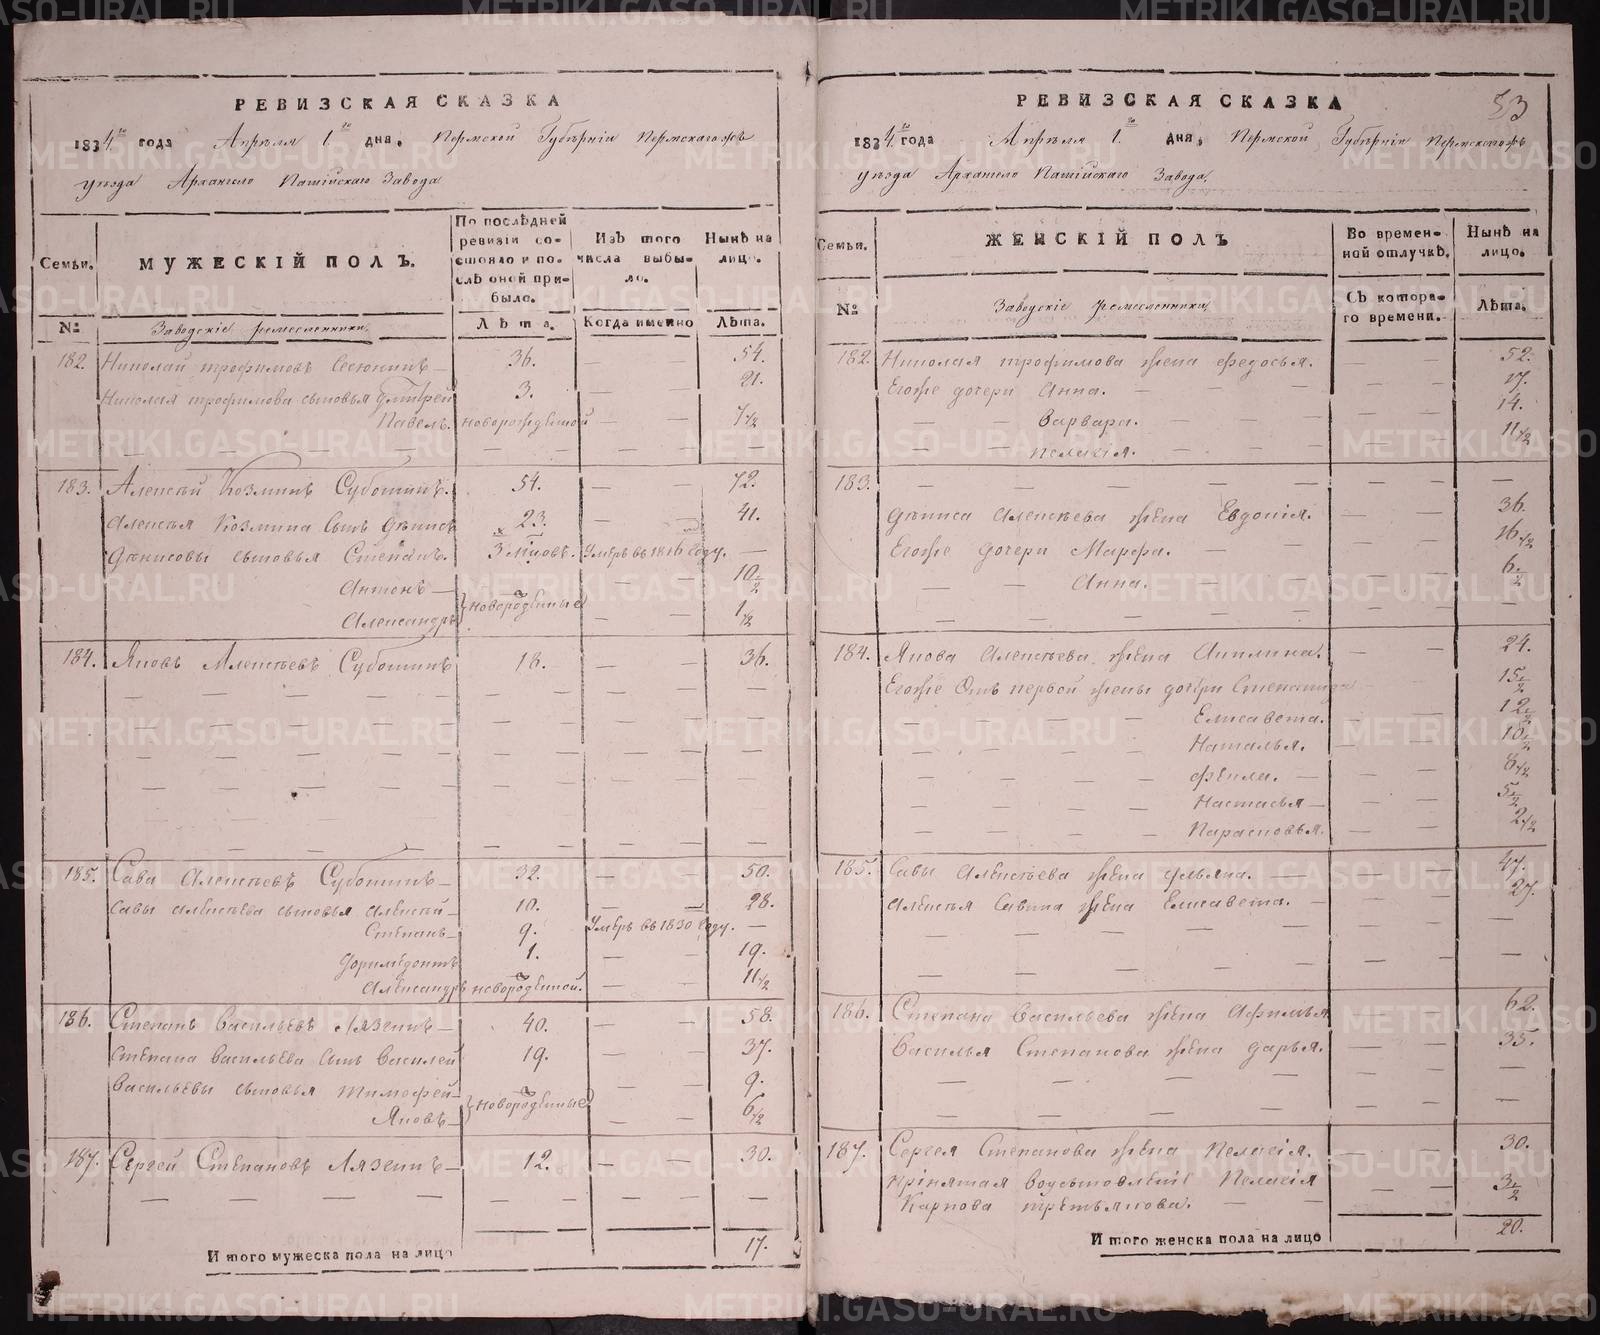 РЕВИЗСКАЯ СКАЗКА
1834.го года Апрѣля 1.го дня, Пермской Губѣрніи Пермскагожъ
уѣзда Архангело Пашійскаго Завода
Семьи.
МУЖЕСКІЙ ПОЛЪ.
По послѣдней ревизіи состояло и послѣ оной прибыло.
Изъ того числа выбыло.
Нынѣ на лицо.
№ Заводскіе ремесленники. Лѣта. Когда именно Лѣта.
182. Николай трофимовъ 36. — — 54.
Николая трофимова сыновья Дмитрей 3. — — 21.
Павелъ. новорождѣной — — 7 1/2
183. Алексѣй Козминъ Суботинъ. 54. — — 72.
Алексѣя Козмина сынъ Дѣнисъ 23. — — 41.
Дѣнисовы сыновья Степанъ. 3 мѣсцовъ. Умѣръ въ 1816 году. —
Антонъ — — — 10 1/2
новородѣнные
Александръ — — 1 1/2
184. Яковъ Алексѣевъ Суботинъ 18. — — 36.
185. Сава Алексѣевъ Суботинъ — 32. — — 50.
Савы алексѣева сыновья алексѣй — 10. — — 28.
Степанъ — 9. Умѣръ въ 1830 году. —
Доримѣдонтъ 1. — — 19.
Алѣксандръ новородѣнной. — — 11 1/2
186. Степанъ Васильевъ Лязгинъ — 40. — — 58.
Степана Васильева сынъ Василей 19. — — 37.
Васильевы сыновья тимофей — — — 9.
новородѣнные
Яковъ — — — 6 1/2
187. Сергей Степановъ Лязгинъ — 12. — — 30.
И того мужеска пола на лицо 17.
53
РЕВИЗСКАЯ СКАЗКА
1834.го года Апрѣля 1.го дня, Пермской Губѣрніи Пермскагожъ
уѣзда Архангело Пашійскаго Завода.
Семьи.
ЖЕНСКІЙ ПОЛЪ
Во временной отлучкѣ.
Нынѣ на лицо.
№ Заводскіе ремесленники. Съ котораго времени. Лѣта.
182. Николая трофимова жена федосья. — — 52.
Егоже дочери Анна. — — — 17.
Варвара. — — 14.
пелагія. — — 11 1/2
183. — — — — — —
Дѣниса Алексѣева жѣна Евдокія. — — 36.
Егоже дочери Марфа. — — — 16 1/2
Анна. — — 6 1/2
184. Якова Алексѣева жѣна Акилина. — — 24.
Егоже Отъ первой жены дочѣри Степанида 15 1/2
Елисавета. — — 12 1/2
Наталья. — — 10 1/2
Фѣкла. — — — 8 1/2
Настасья — — — 5 1/2
Парасковья. — — 2 1/2
185. Савы Алѣксѣева жѣна ульяна. — — — 47.
Алѣксѣя Савина жѣна Елисавета. — — — 27.
186. Степана Васильева жѣна Афимья — — 62.
Василья Степанова жѣна дарья. — — 35.
187. Сергея Степанова жѣна пелагія. — — 30.
Прінятая Пелагія — — 3 1/2
Карпова трѣтьякова.
И того женска пола на лицо 20.